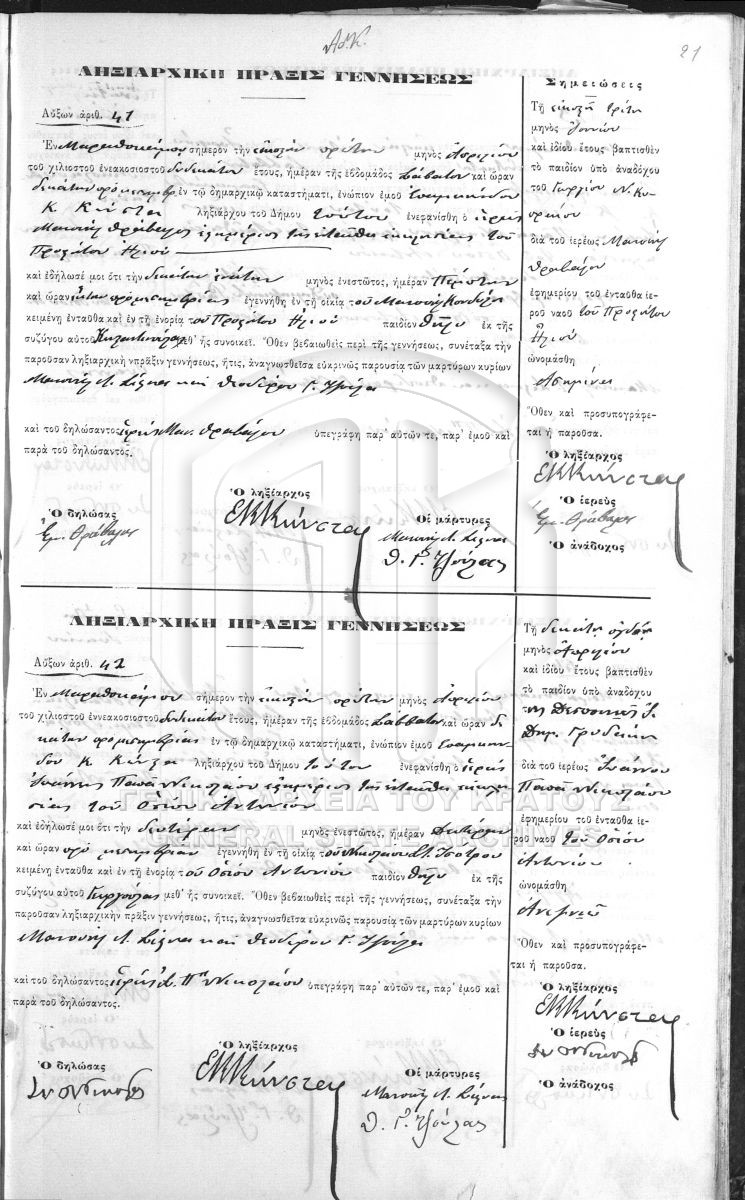 21
ΛΗΞΙΑΡΧΙΚΗ ΠΡΑΞΙΣ ΓΕΝΝΗΣΕΩΣ
Αὔξων ἀριθ. 41
Ἐν Μαραθοκάμπῳ σήμερον τὴν εἰκοστὴν πρώτην μηνὸς Ἀπριλίου
τοῦ χιλιοστοῦ ἐνεακοσιοστοῦ δωδεκάτου ἔτους, ἡμέραν τῆς ἑβδομάδος Σάββατον καὶ ὥραν
δεκάτην προμεσημβρ. ἐν τῷ δημαρχικῷ καταστήματι, ἐνώπιον ἐμοῦ
Κ ληξιάρχου τοῦ Δήμου τούτου ἐνεφανίσθη ὁ ἱερεὺς
Μανουὴλ Θράβαλος ἐφημέριος τῆς ἐνταῦθα ἐκκλησίας τοῦ
Προφήτου Ἠλιοῦ
καὶ ἐδήλωσέ μοι ὅτι τὴν δεκάτην ἐνάτην μηνὸς ἐνεστῶτος, ἡμέραν Πέμπτην
καὶ ὥραν προμεσημβρίας ἐγεννήθη ἐν τῇ οἰκίᾳ τοῦ Μανουὴλ
κειμένη ἐνταῦθα καὶ ἐν τῇ ἐνορίᾳ τοῦ Προφήτου Ἠλιοῦ παιδίον θῆλυ ἐκ τῆς
συζύγου αὐτοῦ μεθ᾽ ἧς συνοικεῖ. Ὅθεν βεβαιωθεὶς περὶ τῆς γεννήσεως, συνέταξα τὴν
παροῦσαν ληξιαρχικὴν πρᾶξιν γεννήσεως, ἥτις, ἀναγνωσθεῖσα εὐκρινῶς παρουσίᾳ τῶν μαρτύρων κυρίων
Μανουὴλ Λ. καὶ Θεοδώρου Γ.
καὶ τοῦ δηλώσαντος ἱερέως Μαν. Θραβάλου ὑπεγράφη παρ᾽ αὐτῶν τε, παρ᾽ ἐμοῦ καὶ
παρὰ τοῦ δηλώσαντος.
Ὁ ληξίαρχος
Ὁ δηλώσας
Οἱ μάρτυρες
Ἐμ. Θράβαλος
Μανουὴλ Λ.
Θ. Γ.
Σημειώσεις
Τῇ εἰκοστῇ τρίτῃ
μηνὸς Ἰουνίου
καὶ ἰδίου ἔτους βαπτισθὲν
τὸ παιδίον ὑπὸ ἀναδόχου
τοῦ Γεωργίου Ν.
διὰ τοῦ ἱερέως Μανουὴλ
Θραβάλου
ἐφημερίου τοῦ ἐνταῦθα ἱε-
ροῦ ναοῦ τοῦ Προφήτου
Ἠλιοῦ
ὠνομάσθη
Ἀσημίνα
Ὅθεν καὶ προσυπογράφε-
ται ἡ παροῦσα.
Ὁ ληξίαρχος
Ὁ ἱερεὺς
Ἐμ. Θράβαλος
Ὁ ἀνάδοχος
ΛΗΞΙΑΡΧΙΚΗ ΠΡΑΞΙΣ ΓΕΝΝΗΣΕΩΣ
Αὔξων ἀριθ. 42
Ἐν Μαραθοκάμπῳ σήμερον τὴν εἰκοστὴν πρώτην μηνὸς Ἀπριλίου
τοῦ χιλιοστοῦ ἐννεακοσιοστοῦ δωδεκάτου ἔτους, ἡμέραν τῆς ἑβδομάδος Σάββατον καὶ ὥραν δε-
κάτην προμεσημβρίας ἐν τῷ δημαρχικῷ καταστήματι, ἐνώπιον ἐμοῦ
Κ ληξιάρχου τοῦ Δήμου τούτου ἐνεφανίσθη ὁ ἱερεὺς
Ἰωάννης Παπᾶ Νικολάου ἐφημέριος τῆς ἐνταῦθα ἐκκλη-
σίας τοῦ Ὁσίου Ἀντωνίου
καὶ ἐδήλωσέ μοι ὅτι τὴν δευτέραν μηνὸς ἐνεστῶτος, ἡμέραν Δευτέραν
καὶ ὥραν πρὸ μεσημβρίας ἐγεννήθη ἐν τῇ οἰκίᾳ τοῦ Νικολάου
κειμένη ἐνταῦθα καὶ ἐν τῇ ἐνορίᾳ τοῦ Ὁσίου Ἀντωνίου παιδίον θῆλυ ἐκ τῆς
συζύγου αὐτοῦ μεθ᾽ ἧς συνοικεῖ. Ὅθεν βεβαιωθεὶς περὶ τῆς γεννήσεως, συνέταξα τὴν
παροῦσαν ληξιαρχικὴν πρᾶξιν γεννήσεως, ἥτις, ἀναγνωσθεῖσα εὐκρινῶς παρουσίᾳ τῶν μαρτύρων κυρίων
Μανουὴλ Λ. καὶ Θεοδώρου Γ.
καὶ τοῦ δηλώσαντος ἱερέως Νικολάου ὑπεγράφη παρ᾽ αὐτῶν τε, παρ᾽ ἐμοῦ καὶ
παρὰ τοῦ δηλώσαντος.
Ὁ ληξίαρχος
Ὁ δηλώσας
Οἱ μάρτυρες
Μανουὴλ Λ.
Θ. Γ.
Τῇ δεκάτῃ ὀγδόῃ
μηνὸς Ἀπριλίου
καὶ ἰδίου ἔτους βαπτισθὲν
τὸ παιδίον ὑπὸ ἀναδόχου
τῆς
Δημ.
διὰ τοῦ ἱερέως Ἰωάννου
Παπᾶ Νικολάου
ἐφημερίου τοῦ ἐνταῦθα ἱε-
ροῦ ναοῦ τοῦ Ὁσίου
Ἀντωνίου
ὠνομάσθη
Ὅθεν καὶ προσυπογράφε-
ται ἡ παροῦσα.
Ὁ ληξίαρχος
Ὁ ἱερεὺς
Ὁ ἀνάδοχος
ΓΕΝΙΚΑ ΑΡΧΕΙΑ ΤΟΥ ΚΡΑΤΟΥΣ
GENERAL STATE ARCHIVES